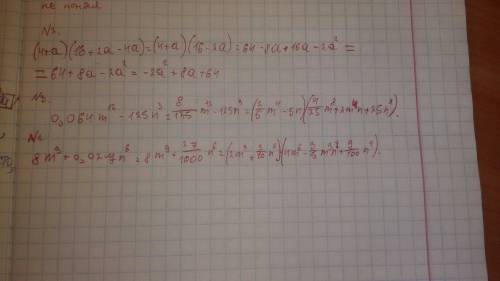 не понял
N1.
(4+a)(16+2a-4a)=(4+a)(16-2a)=64-8a+16a-2a²=
=64+8a-2a²=-2a²+8a+64
0,064m¹²-125n³=8/125 m¹²-125n³=(2/5 m⁴-5n)(4/25 m⁸+2m⁴n+25n²).
8m⁹+0,027n⁶=8m⁹+27/1000 n⁶=(2m³+3/10 n²)(4m⁶-3/5 m³n²+9/100 n⁴).